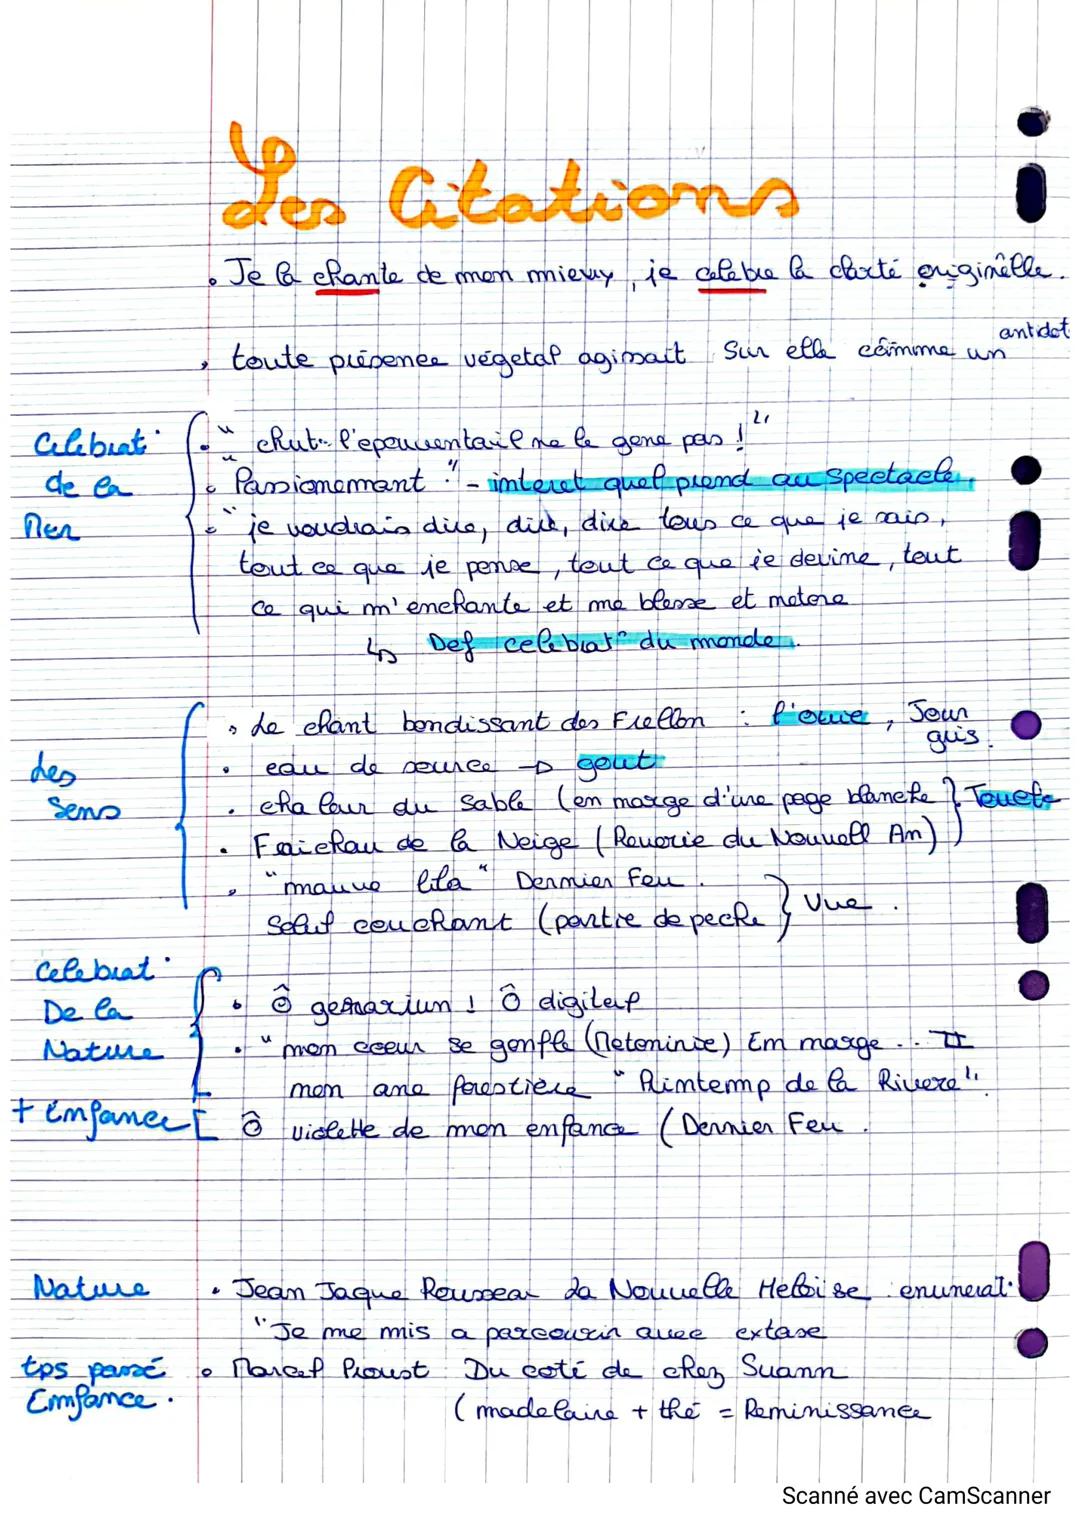 Les Citations
• Je la chante de mon mieux, je celebre la clarté originelle.
antidot
• toute présence végetal agissait sur elle comme un
Celebrat°
de la
Mer
• " chut.. l'epouventail ne le gene pas ! "
• " Passionemant " - interet quel prend au spectacle.
• " je voudrais dire, dire, dire tous ce que je sais,
tout ce que je pense, tout ce que je devine, tout
ce qui m'enchante et me blesse et metone
↳ Def celebrat° du monde.
Les
Sens
• Le chant bondissant des Frellon : l'ouïe, Jour
gris.
• eau de source → gout
• chaleur du sable (en marge d'une page blanche } Touché
• Fraicheau de la Neige (Reverie du Nouvell An) }
• "mauve lila" Dernier Feu.
Soleil couchant (partie de peche } Vue.
Celebrat°
De la
Nature
• Ô geranium ! Ô digitale
• " mon coeur se gonfle (Metonimie) Em marge... II
mon ame forestière " Printemp de la Riviere".
+ Enfance [ Ô violette de mon enfance (Dernier Feu.
Nature • Jean Jaque Rousseau La Nouvelle Heloïse : enumerat°
"Je me mis a parcourir avec extase
tps passé • Marcel Proust : Du coté de chez Suann
Emfance.
(madelaine + thé = Reminissance
Scanné avec CamScanner